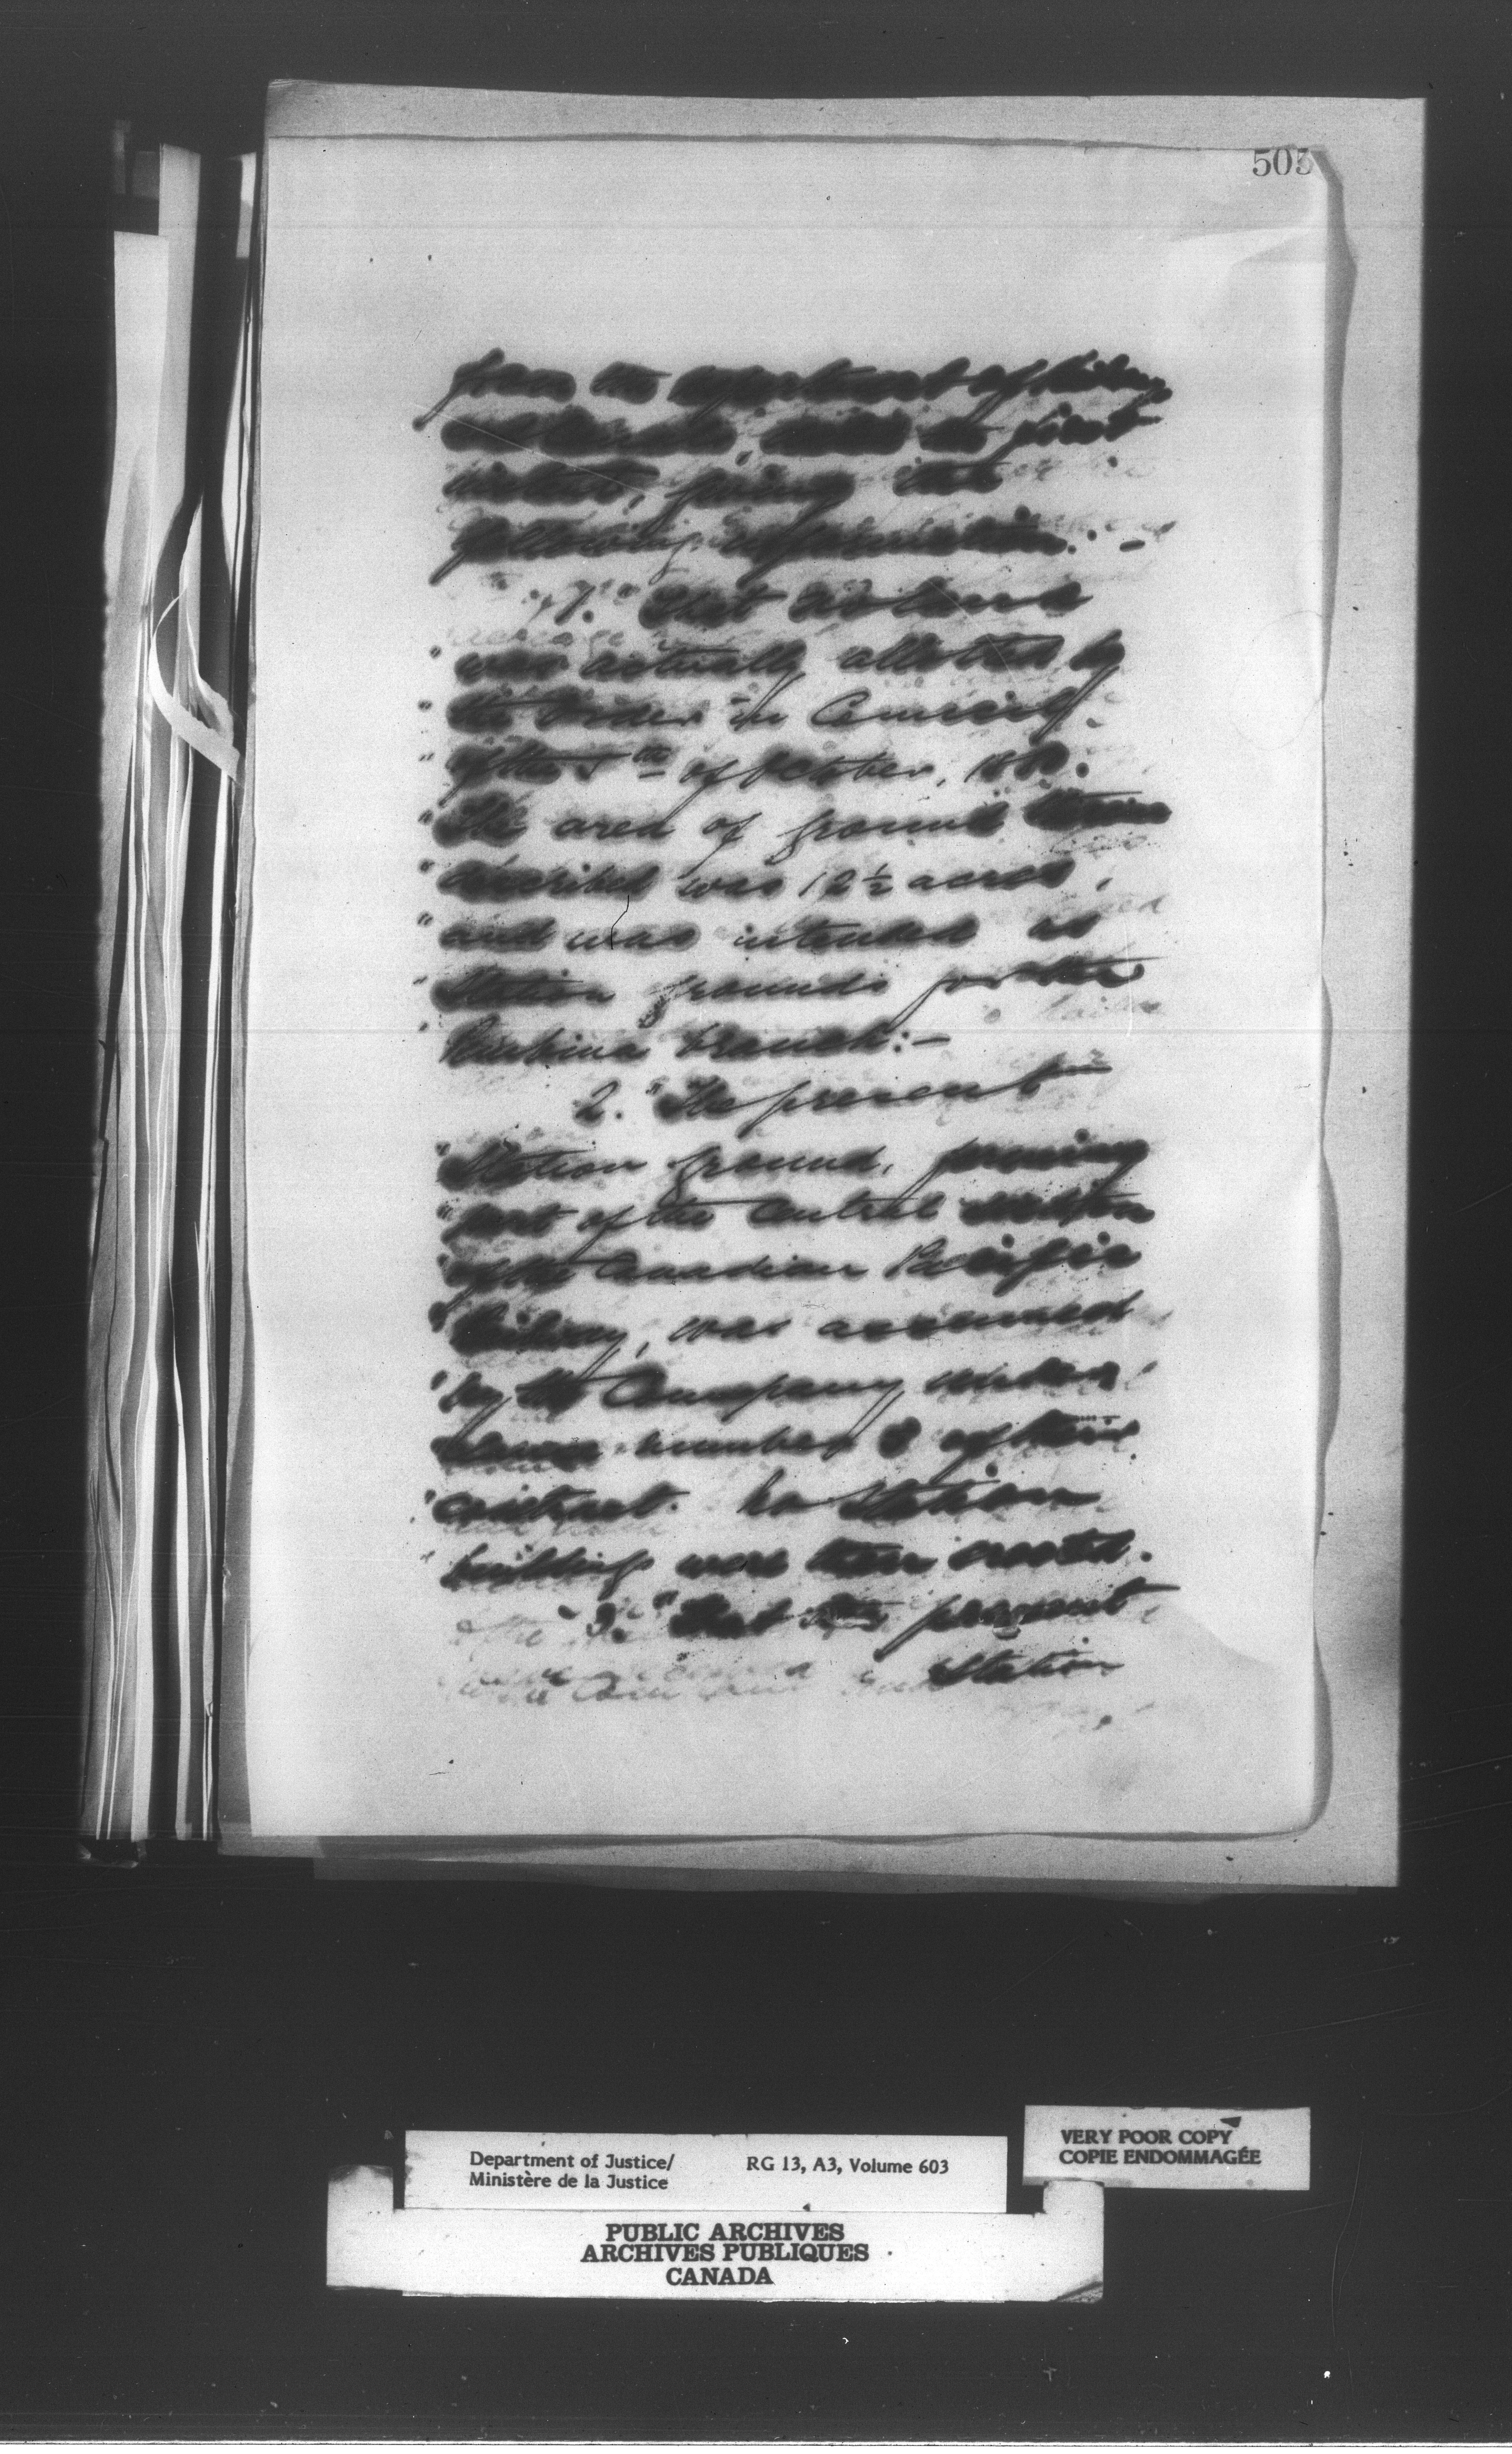 505
from the department of Railways
and Canals, the first
giving the
following information:-
"1." That no land
" was actually allotted by
" the Order in Council
" of the 5th of October, 1880.
" The area of ground therein
" described was 12½ acres,
" and was intended as
" Station grounds for the
" Pembina Branch:-
2. "The present
" Station ground, forming
" part of the Central section
" of the Canadian Pacific
" Railway, was assumed
" by the Company under
" clause number 8 of their
" contract. No Station
" buildings were then erected.
"3." That the present
Station
Department of Justice/
Ministère de la Justice
RG 13, A3, Volume 603
VERY POOR COPY
COPIE ENDOMMAGÉE
PUBLIC ARCHIVES
ARCHIVES PUBLIQUES
CANADA